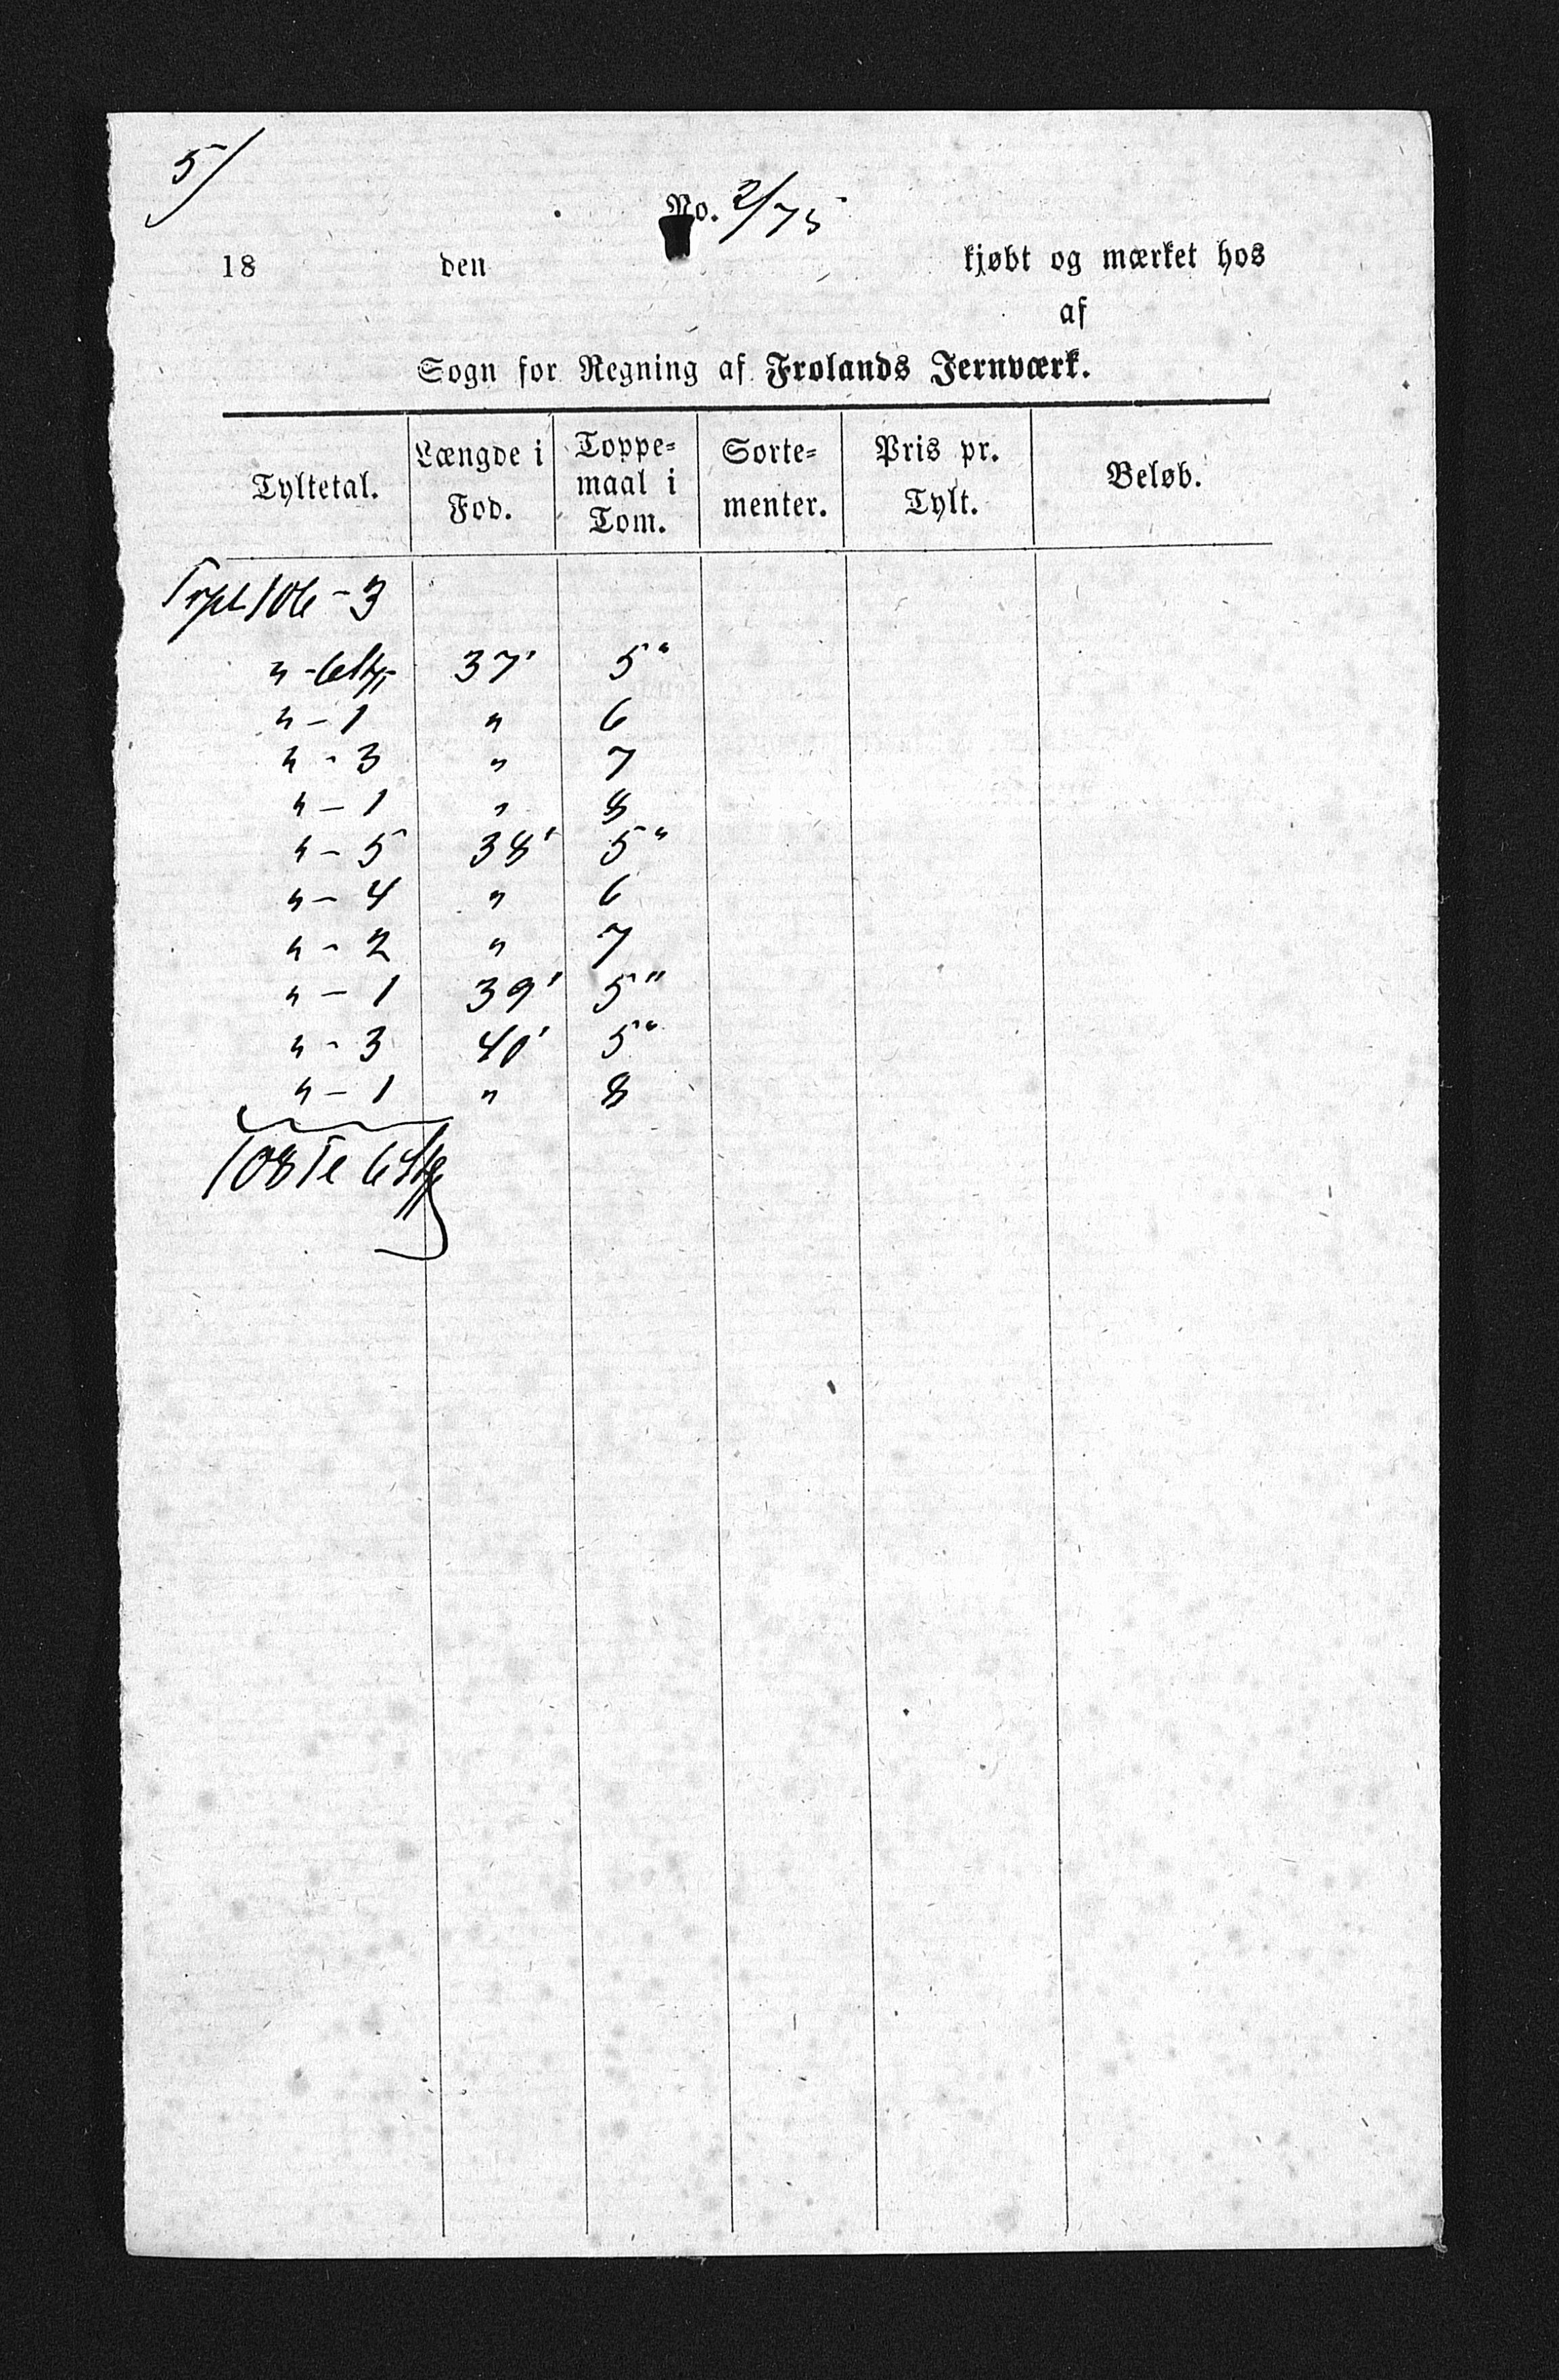 5/
No. 2/75
18 den kjøbt og mærket hos
af
Sogn for Regning af Frolands Jernværk.
Tyltetal. Længde i Fod. Toppe-maal i Tom. Sorte-menter. Pris pr. Tylt. Beløb.
Trpt 106 - 3
" - 6 Stk 37' 5"
" - 1 " 6
" - 3 " 7
" - 1 " 8
" - 5 38' 5"
" - 4 " 6
" - 2 " 7
" - 1 39' 5"
" - 3 40' 5"
" - 1 " 8
108 Te 6 Stk